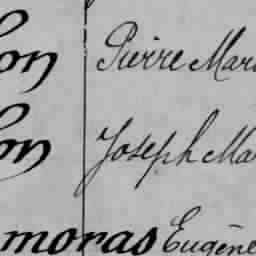 on Pierre Mar
on Joseph Ma
moras Eugène